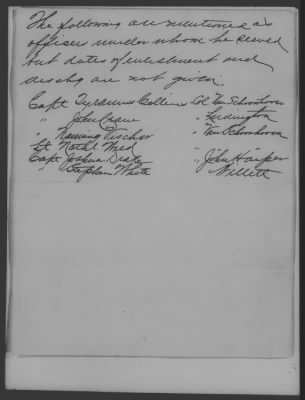 The following are mentioned as
officers under whom he served
but dates of enlistment and
dischg are not given.
Capt Tyrannus Collins Col Van Schoonhoven
" John Crane " Ludington
" Nanning Vischer " Van Schoonhoven
Lt Nathl. Weed " John Harper
Capt Joshua Drake " Willett
" Stephen White